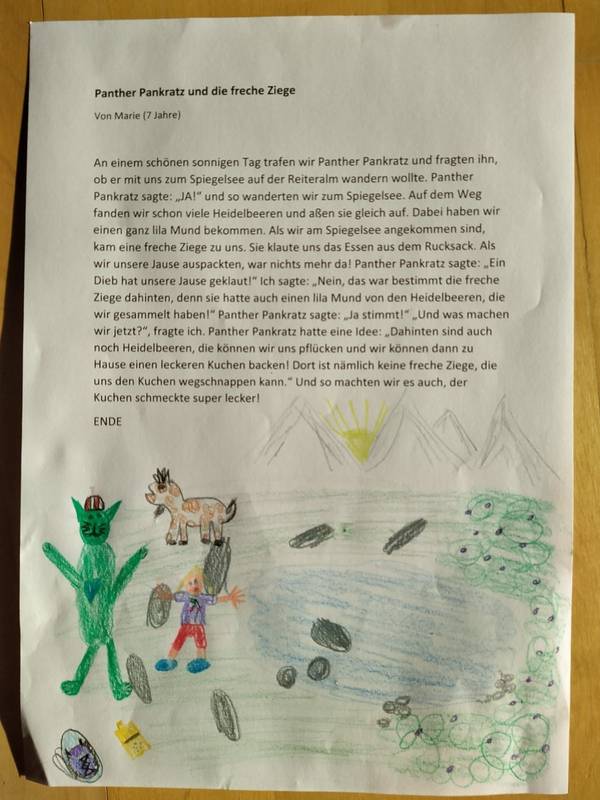 Panther Pankratz und die freche Ziege
Von Marie (7 Jahre)
An einem schönen sonnigen Tag trafen wir Panther Pankratz und fragten ihn,
ob er mit uns zum Spiegelsee auf der Reiteralm wandern wollte. Panther
Pankratz sagte: „JA!" und so wanderten wir zum Spiegelsee. Auf dem Weg
fanden wir schon viele Heidelbeeren und aßen sie gleich auf. Dabei haben wir
einen ganz lila Mund bekommen. Als wir am Spiegelsee angekommen sind,
kam eine freche Ziege zu uns. Sie klaute uns das Essen aus dem Rucksack. Als
wir unsere Jause auspackten, war nichts mehr da! Panther Pankratz sagte: „Ein
Dieb hat unsere Jause geklaut!" Ich sagte: „Nein, das war bestimmt die freche
Ziege dahinten, denn sie hatte auch einen lila Mund von den Heidelbeeren, die
wir gesammelt haben!" Panther Pankratz sagte: „Ja stimmt!" „Und was machen
wir jetzt?", fragte ich. Panther Pankratz hatte eine Idee: „Dahinten sind auch
noch Heidelbeeren, die können wir uns pflücken und wir können dann zu
Hause einen leckeren Kuchen backen! Dort ist nämlich keine freche Ziege, die
uns den Kuchen wegschnappen kann." Und so machten wir es auch, der
Kuchen schmeckte super lecker!
ENDE